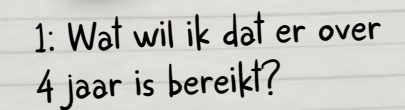 1: Wat wil ik dat er over
4 jaar is bereikt?